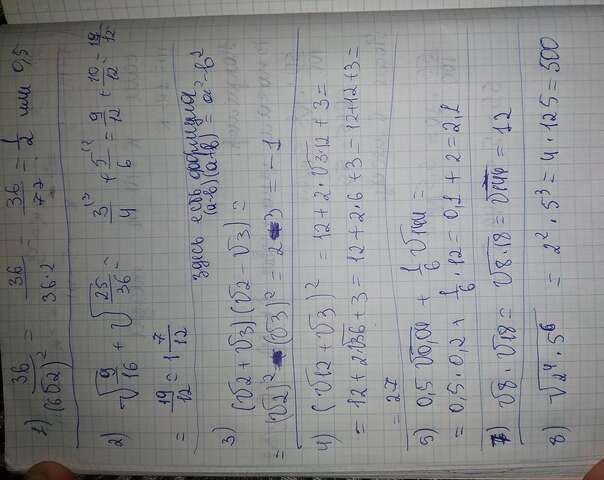 1) 36/(6√2)² = 36/36·2 = 36/72 = 1/2 или 0,5
2) √9/16 + √25/36 = 3/4 + 5/6 = 9/12 + 10/12 = 19/12
= 19/12 = 1 7/12
здесь есть формула
(a-b)(a+b) = a²-b²
3) (√2 + √3)(√2 - √3) =
= (√2)² - (√3)² = 2 - 3 = -1
4) (√12 + √3)² = 12 + 2·√3·12 + 3 =
= 12 + 2√36 + 3 = 12 + 2·6 + 3 = 12+12+3 =
= 27
5) 0,5 √0,04 + 1/6 √144 =
= 0,5 · 0,2 + 1/6 · 12 = 0,1 + 2 = 2,1
7) √8 · √18 = √8·18 = √144 = 12
8) √2⁴ · 5⁶ = 2² · 5³ = 4 · 125 = 500